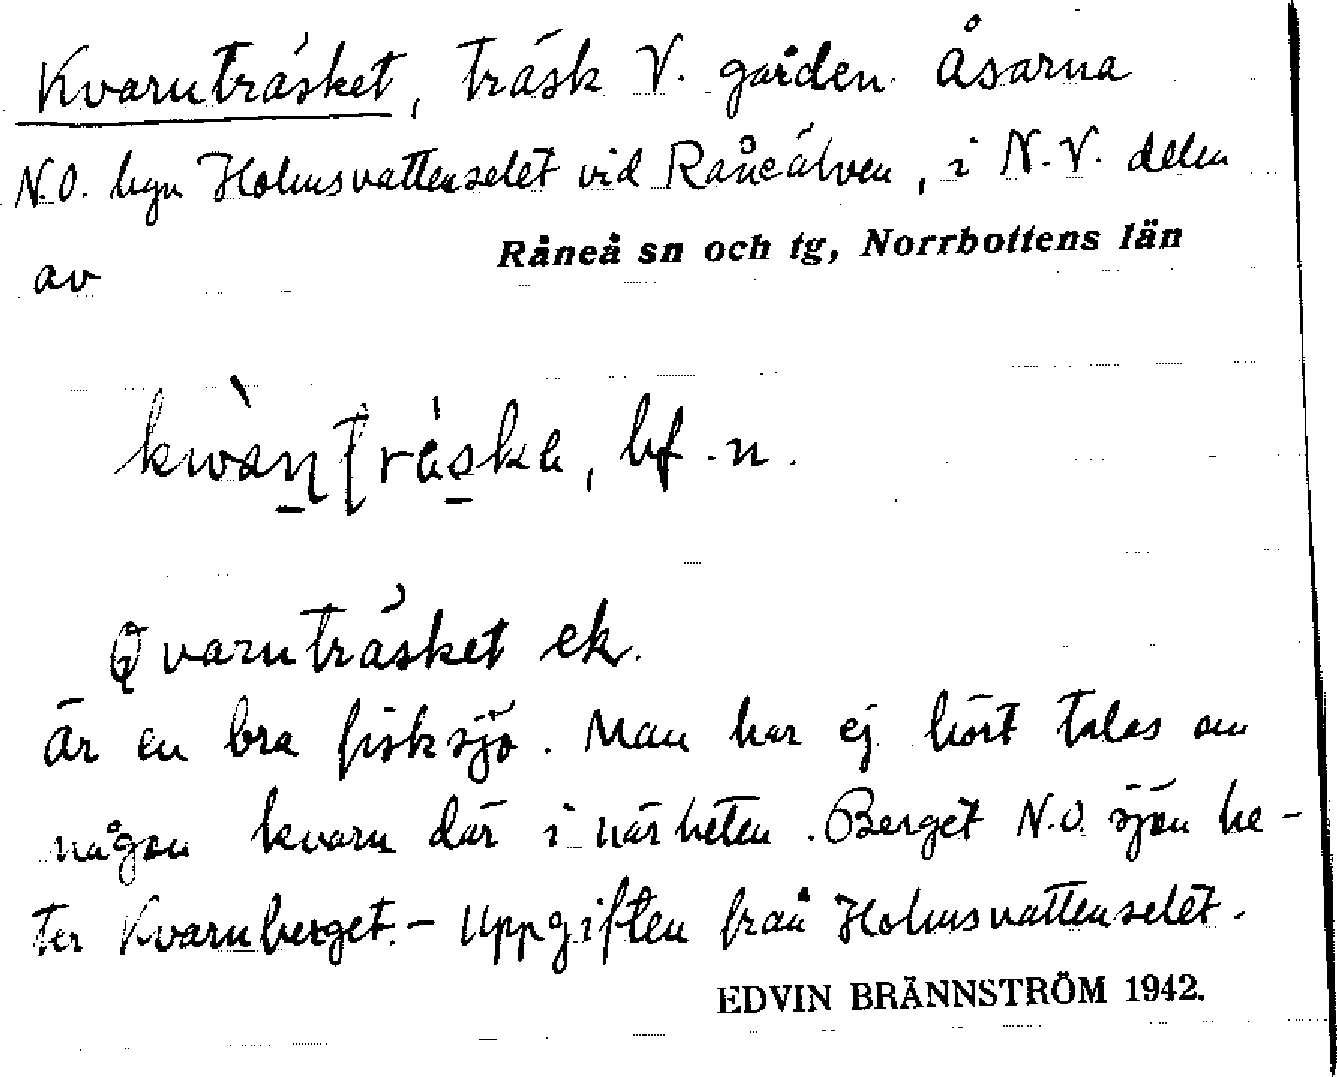 Kvarnträsket, träsk V. gården Åsarna
N.O. byn Holmsvattenselet vid Råneälven, i N.V. delen
av Råneå sn och tg, Norrbottens län
bf. n.
Qvarnträsket ek.
Är en bra fisksjö. Man har ej hört talas om
någon kvarn där i närheten. Berget N.O. sjön he-
ter Kvarnberget. - Uppgiften från Holmsvattenselet.
EDVIN BRÄNNSTRÖM 1942.